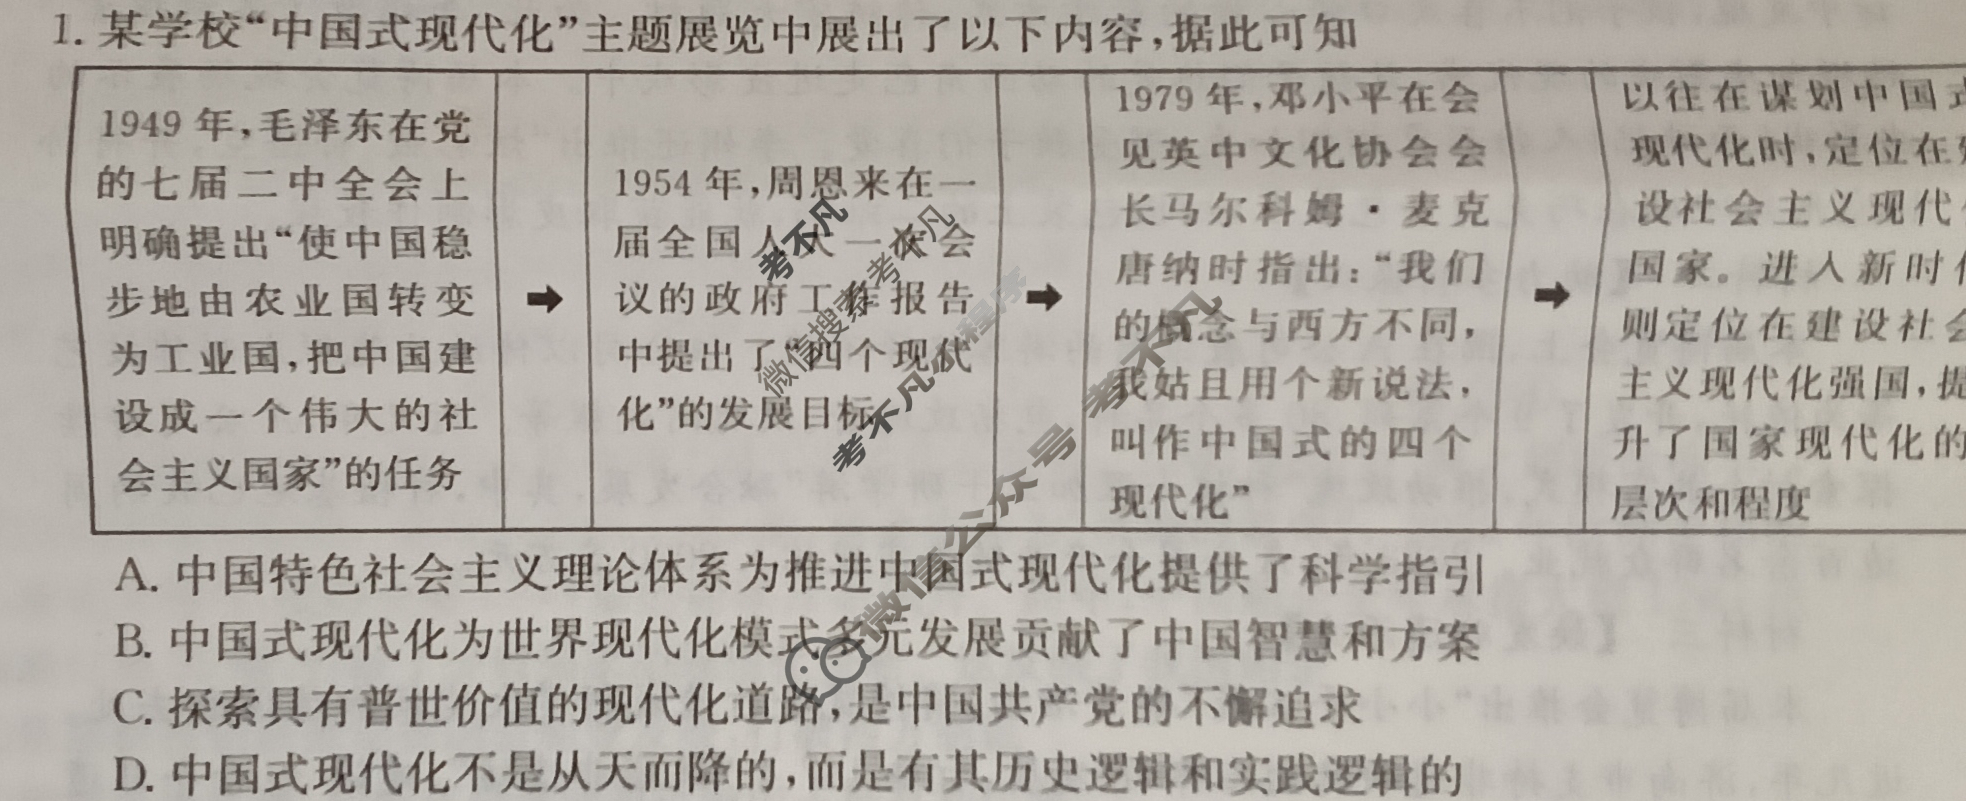 1. 某学校“中国式现代化”主题展览中展出了以下内容,据此可知
1949 年,毛泽东在党
的七届二中全会上
明确提出“使中国稳
步地由农业国转变
为工业国,把中国建
设成一个伟大的社
会主义国家”的任务
➡
1954 年,周恩来在一
届全国人大一次会
议的政府工作报告
中提出了“四个现代
化”的发展目标
➡
1979 年,邓小平在会
见英中文化协会会
长马尔科姆·麦克
唐纳时指出:“我们
的概念与西方不同,
我姑且用个新说法,
叫作中国式的四个
现代化”
➡
以往在谋划中国
现代化时,定位在
设社会主义现代
国家。进入新时
则定位在建设社会
主义现代化强国,提
升了国家现代化的
层次和程度
A. 中国特色社会主义理论体系为推进中国式现代化提供了科学指引
B. 中国式现代化为世界现代化模式多元发展贡献了中国智慧和方案
C. 探索具有普世价值的现代化道路,是中国共产党的不懈追求
D. 中国式现代化不是从天而降的,而是有其历史逻辑和实践逻辑的
考不凡
微信搜索考不凡
考不凡小程序
微信公众号 考不凡